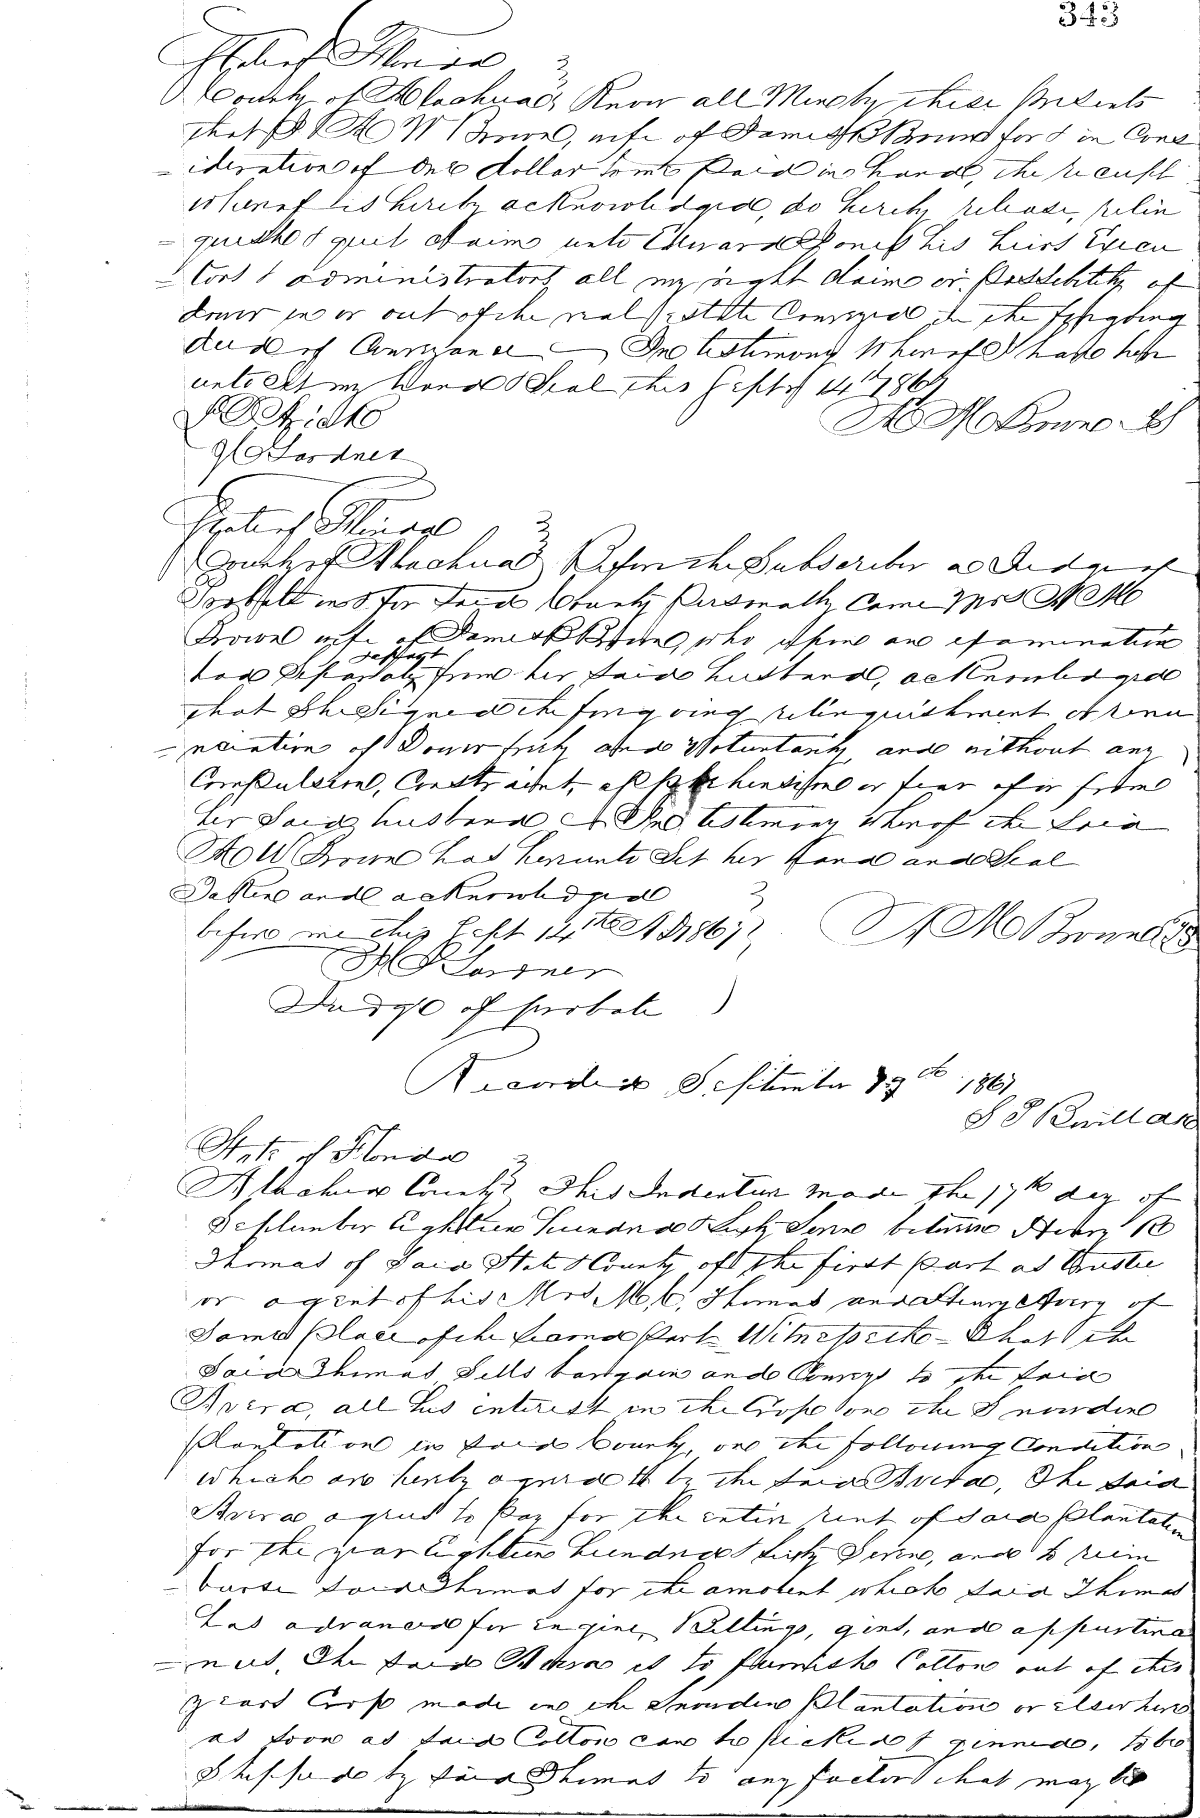 343
State of Florida
County of Alachua Know all Men by these presents
that I A W Brown, wife of James B Brown for & in Cons
ideration of One dollar to me paid in hand, the receipt
whereof is hereby acknowledged, do hereby release, relin
quish & quit claim unto Edward Jones his heirs Execu
tors & administrators all my right claim or possibility of
dower in or out of the real estate Conveyed in the foregoing
deed of Conveyance In testimony Whereof I have here
unto set my hand & Seal this Septr 14th 1867
A M Brown LS
Gardner
State of Florida
County of Alachua Before the Subscriber as Judge of
Probate in & for said County personally Came Mrs A M
Brown wife of James B Brown, who upon an examination
had separately & apart from her said husband, acknowledged
that She Signed the foregoing relinquishment & renu
nciation of Dower freely and Voluntarily, and without any
Compulsion, Constraint, apprehension or fear of or from
her said husband In testimony whereof the said
A W Brown has hereunto Set her hand and Seal
Taken and acknowledged
before me this Sept 14th A D 1867 A M Brown LS
Gardner
Judge of probate
Recorded September 19th 1867
State of Florida
Alachua County This Indenture made the 17th day of
September Eighteen Hundred & Sixty Seven between Henry
Thomas of said State & County of the first part as trustee
or agent of his Mrs M C, Thomas and Henry Avery of
Same place of the Second Part Witnesseth - That the
Said Thomas Sells bargain and Conveys to the said
Avera, all his interest in the Crop on the Snowden
Plantation in said County, on the following Condition
which are hereby agreed to by the said Avera, The said
Avera agrees to pay for the entire rent of said plantation
for the year Eighteen hundred & sixty Seven, and to reim
burse said Thomas for the amount which said Thomas
has advanced for engine, Beltings, gins, and appurtena
nces, The said Avera is to furnish Cotton out of this
years Crop made on the Snowden Plantation or elsewhere
as soon as said Cotton can be picked & ginned, to be
Shipped by said Thomas to any factor that may be